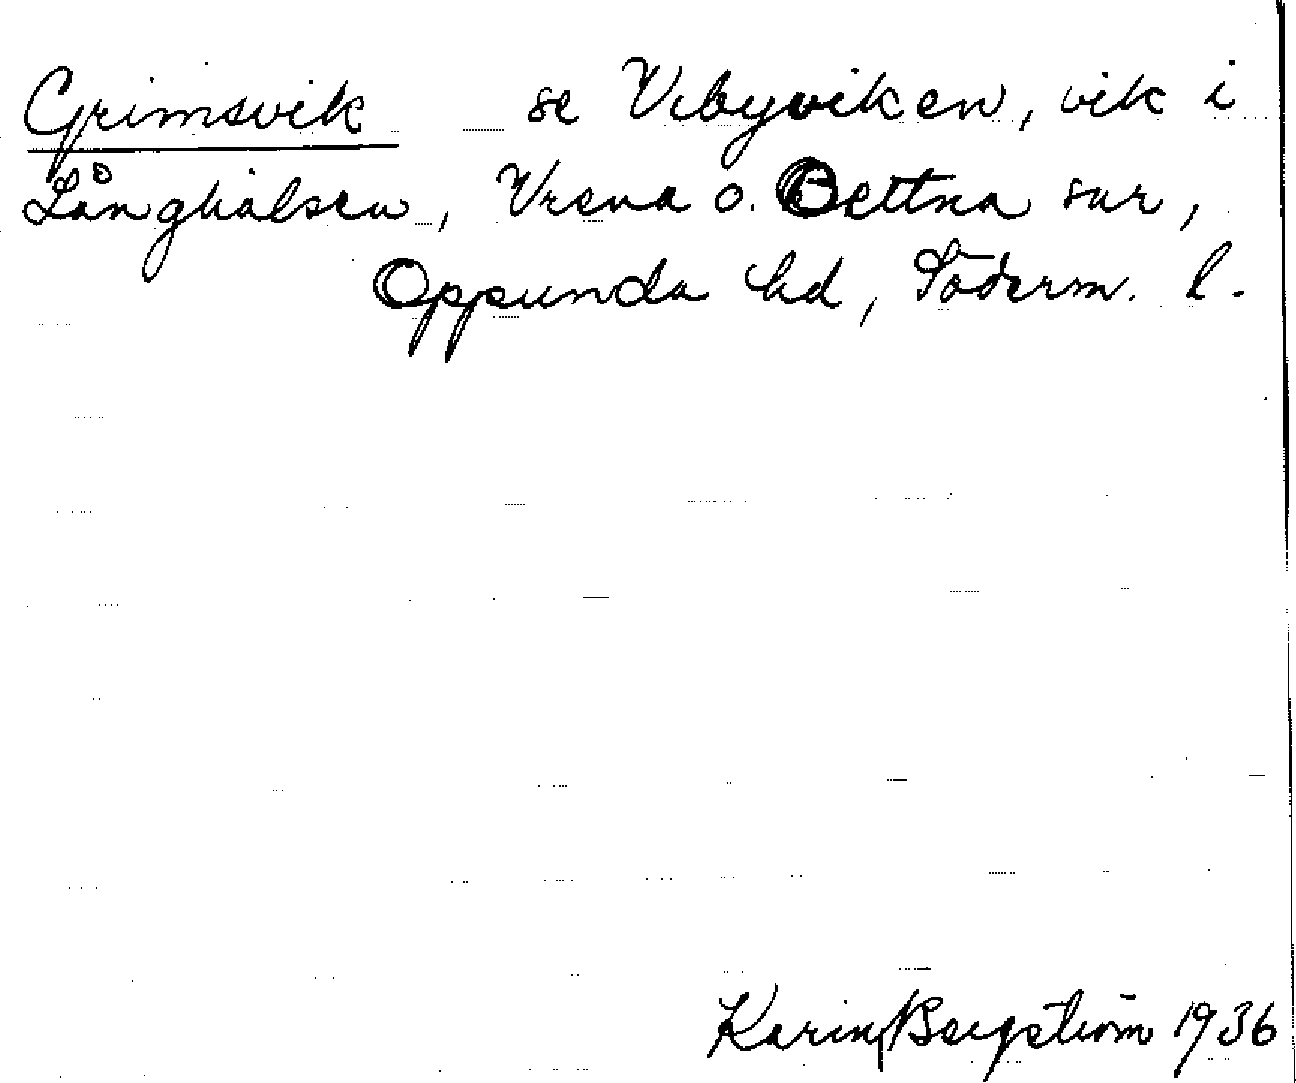 Grimsvik se Vibyviken, vik i
Långhalsen, Vrena o. Bettna snr,
Oppunda hd, Söderm. l.
Karin Bergström 1936